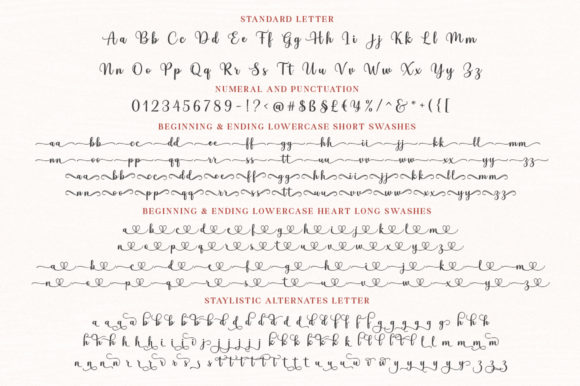 STANDARD LETTER
Aa Bb Cc Dd Ee Ff Gg Hh Ii Jj Kk Ll Mm
Nn Oo Pp Qq Rr Ss Tt Uu Vv Ww Xx Yy Zz
NUMERAL AND PUNCTUATION
0123456789-!?<@#$ß§£€¥%/^&*+({[
BEGINNING & ENDING LOWERCASE SHORT SWASHES
aa bb cc dd ee ff gg hh ii jj kk ll mm
nn oo pp qq rr ss tt uu vv ww xx yy zz
aa bb cc dd ee ff gg hh ii jj kk ll mm
nn oo pp qq rr ss tt uu vv ww xx yy zz
BEGINNING & ENDING LOWERCASE HEART LONG SWASHES
a b c d e f g h i j k l m
n o p q r s t u v w x y z
a b c d e f g h i j k l m
n o p q r s t u v w x y z
STAYLISTIC ALTERNATES LETTER